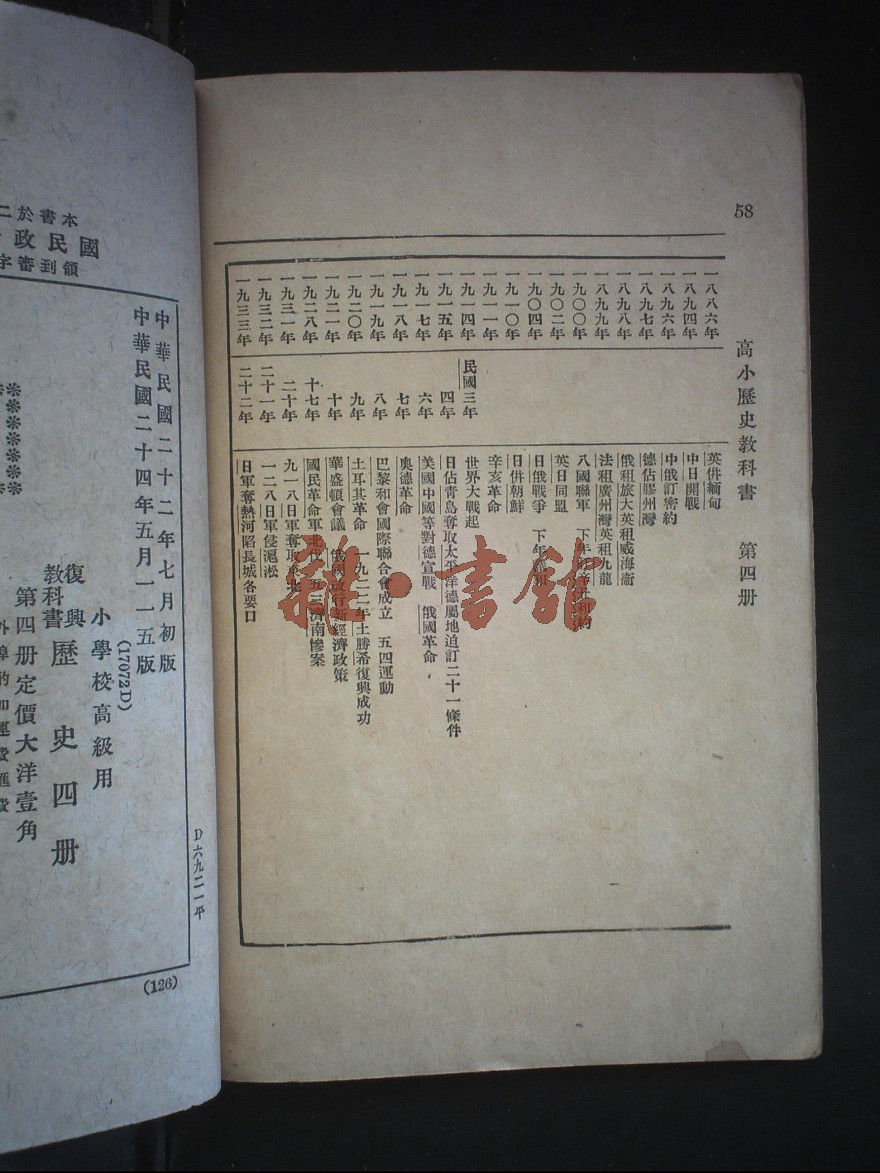 58
高小歷史教科書 第四册
一八八六年 英併緬甸
一八九四年 中日開戰
一八九六年 中俄訂密約
一八九七年 德佔膠州灣
一八九八年 俄租旅大英租威海衞
一八九九年 法租廣州灣英租九龍
一九〇〇年 八國聯軍 下年
一九〇二年 英日同盟
一九〇四年 日俄戰爭 下年
一九一〇年 日併朝鮮
一九一一年 辛亥革命
一九一四年 民國三年 世界大戰起
一九一五年 四年 日佔青島奪取太平洋德屬地迫訂二十一條件
一九一七年 六年 美國中國等對德宣戰 俄國革命
一九一八年 七年 奧德革命
一九一九年 八年 巴黎和會國際聯合會成立 五四運動
一九二〇年 九年 土耳其革命 一九二二年土勝希復興成功
一九二一年 十年 華盛頓會議 俄國改行新經濟政策
一九二八年 十七年 國民革命軍北伐 五三濟南慘案
一九三一年 二十年 九一八日軍奪取東北
一九三二年 二十一年 一二八日軍侵滬淞
一九三三年 二十二年 日軍奪熱河陷長城各要口
雜·書館
D六九二一平
本書於二
國民政
領到審字
中華民國二十二年七月初版
中華民國二十四年五月一一五版
(17072D)
小學校高級用
復興教科書 歷史四册
第四册定價大洋壹角
外埠酌加運費匯費
(126)